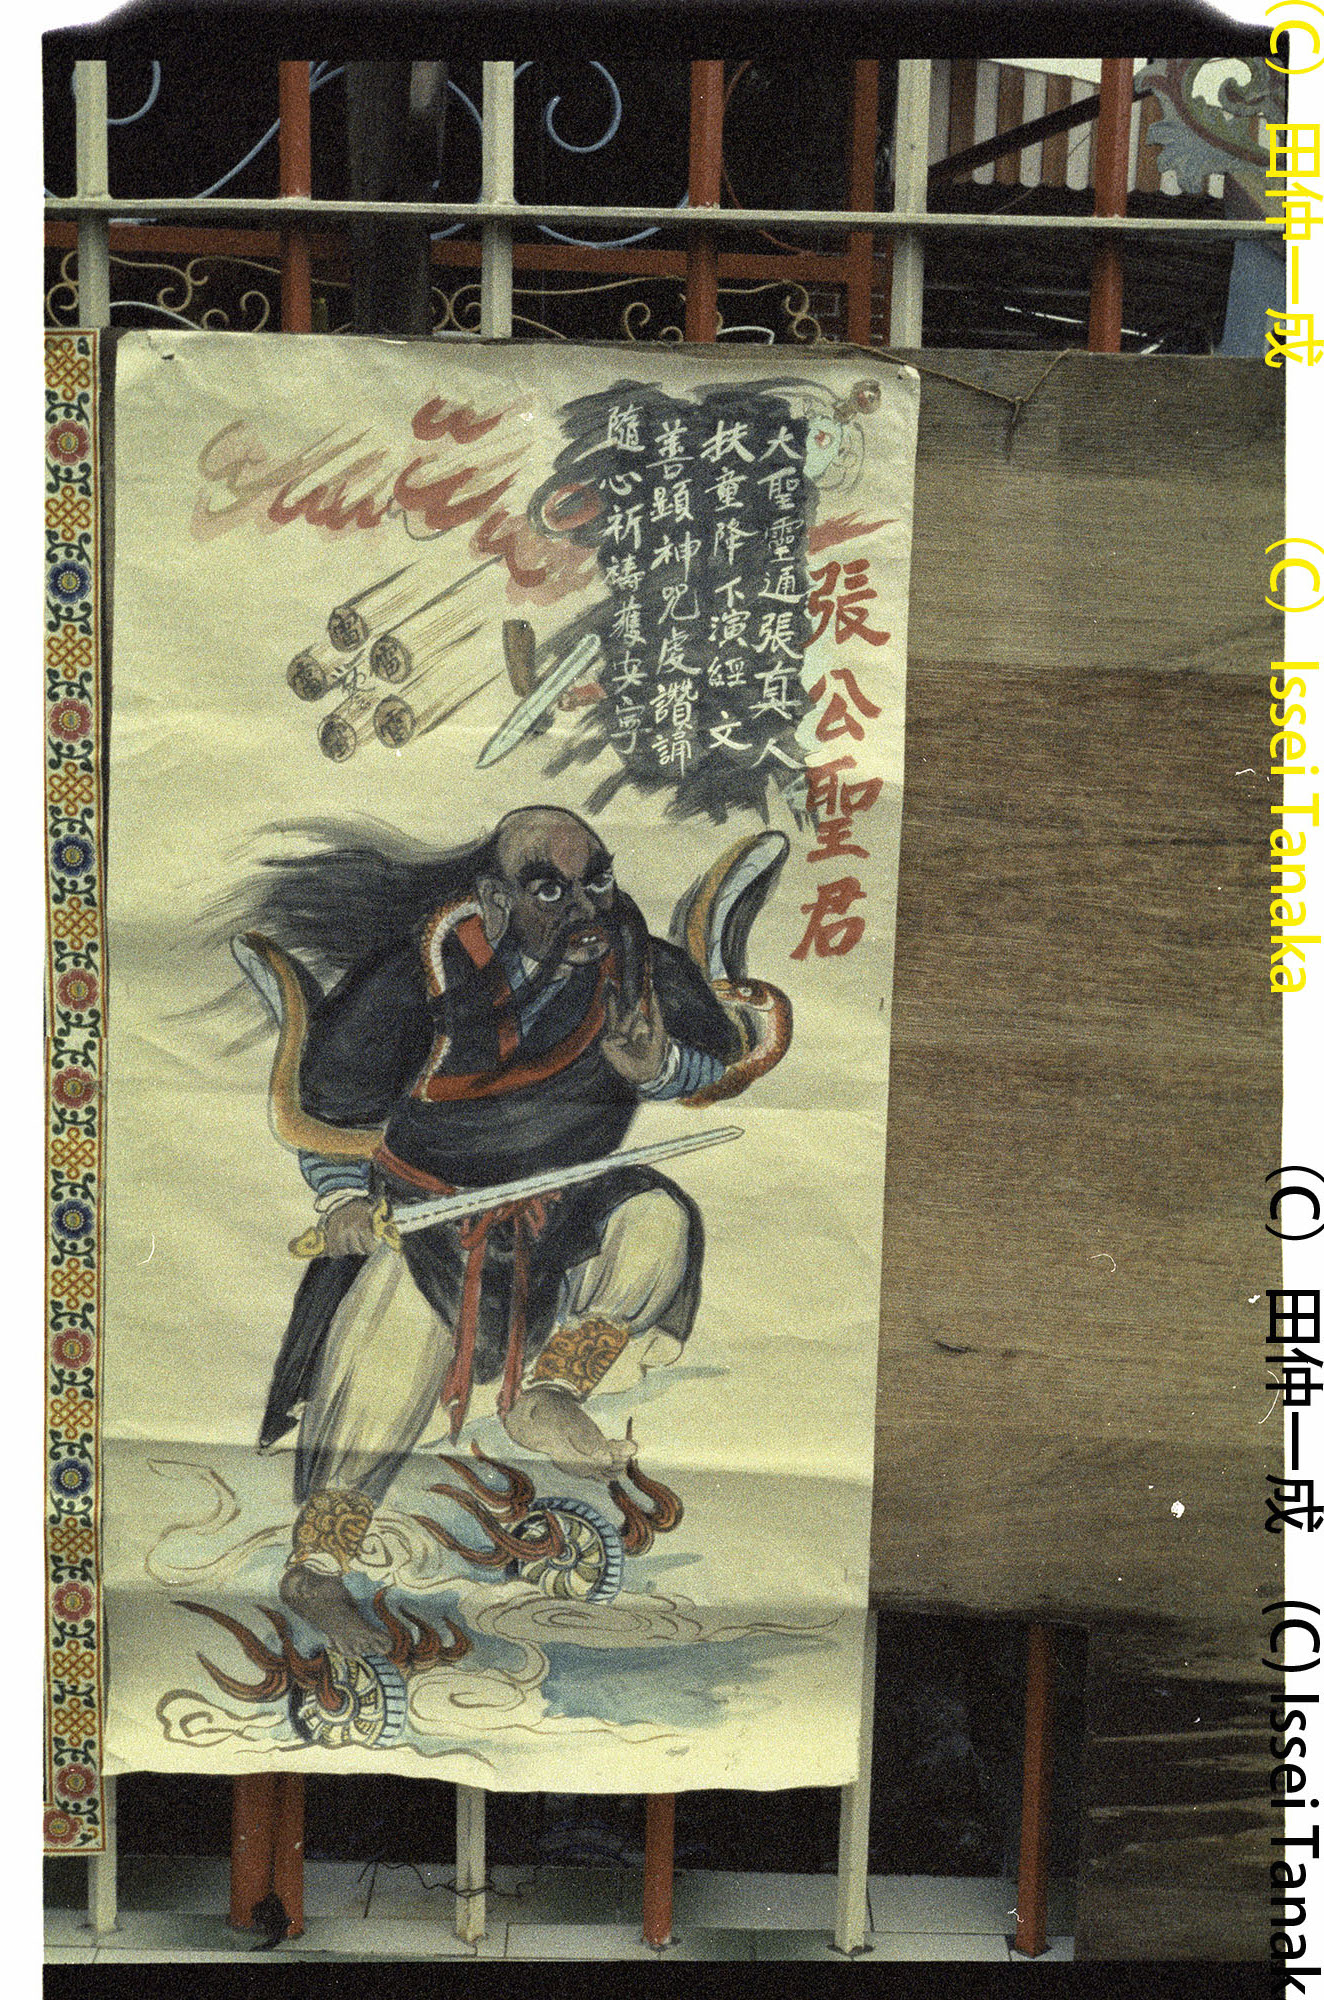 張公聖君
大聖靈通張真人
扶童降下演經文
善顕神咒虔讚誦
隨心祈禱獲安寧
雷
雷
雷
雷
(C) 田仲一成 (C) Issei Tanaka
(C) 田仲一成 (C) Issei Tanak